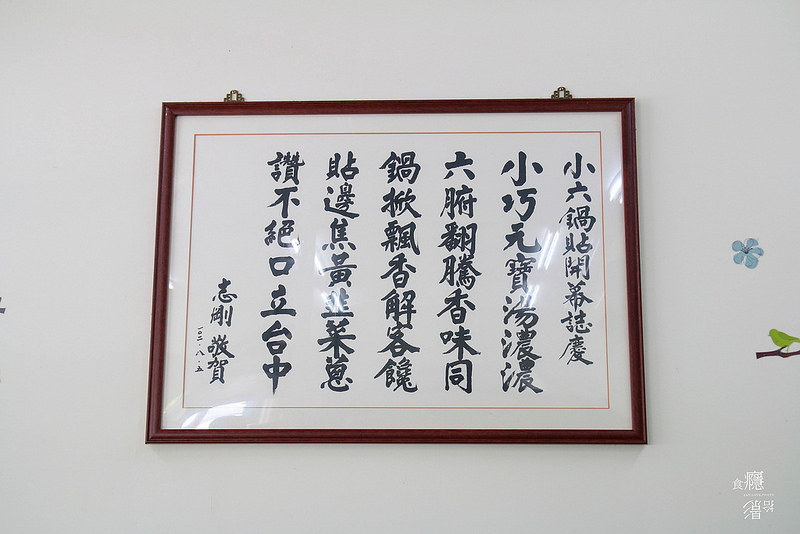 小六鍋貼開幕誌慶
小巧元寶湯濃濃
六腑翻騰香味同
鍋掀飄香解客饞
貼邊焦黃韭菜蔥
讚不絕口立台中
志剛 敬賀
一〇二.八.五
食癮
拾糧